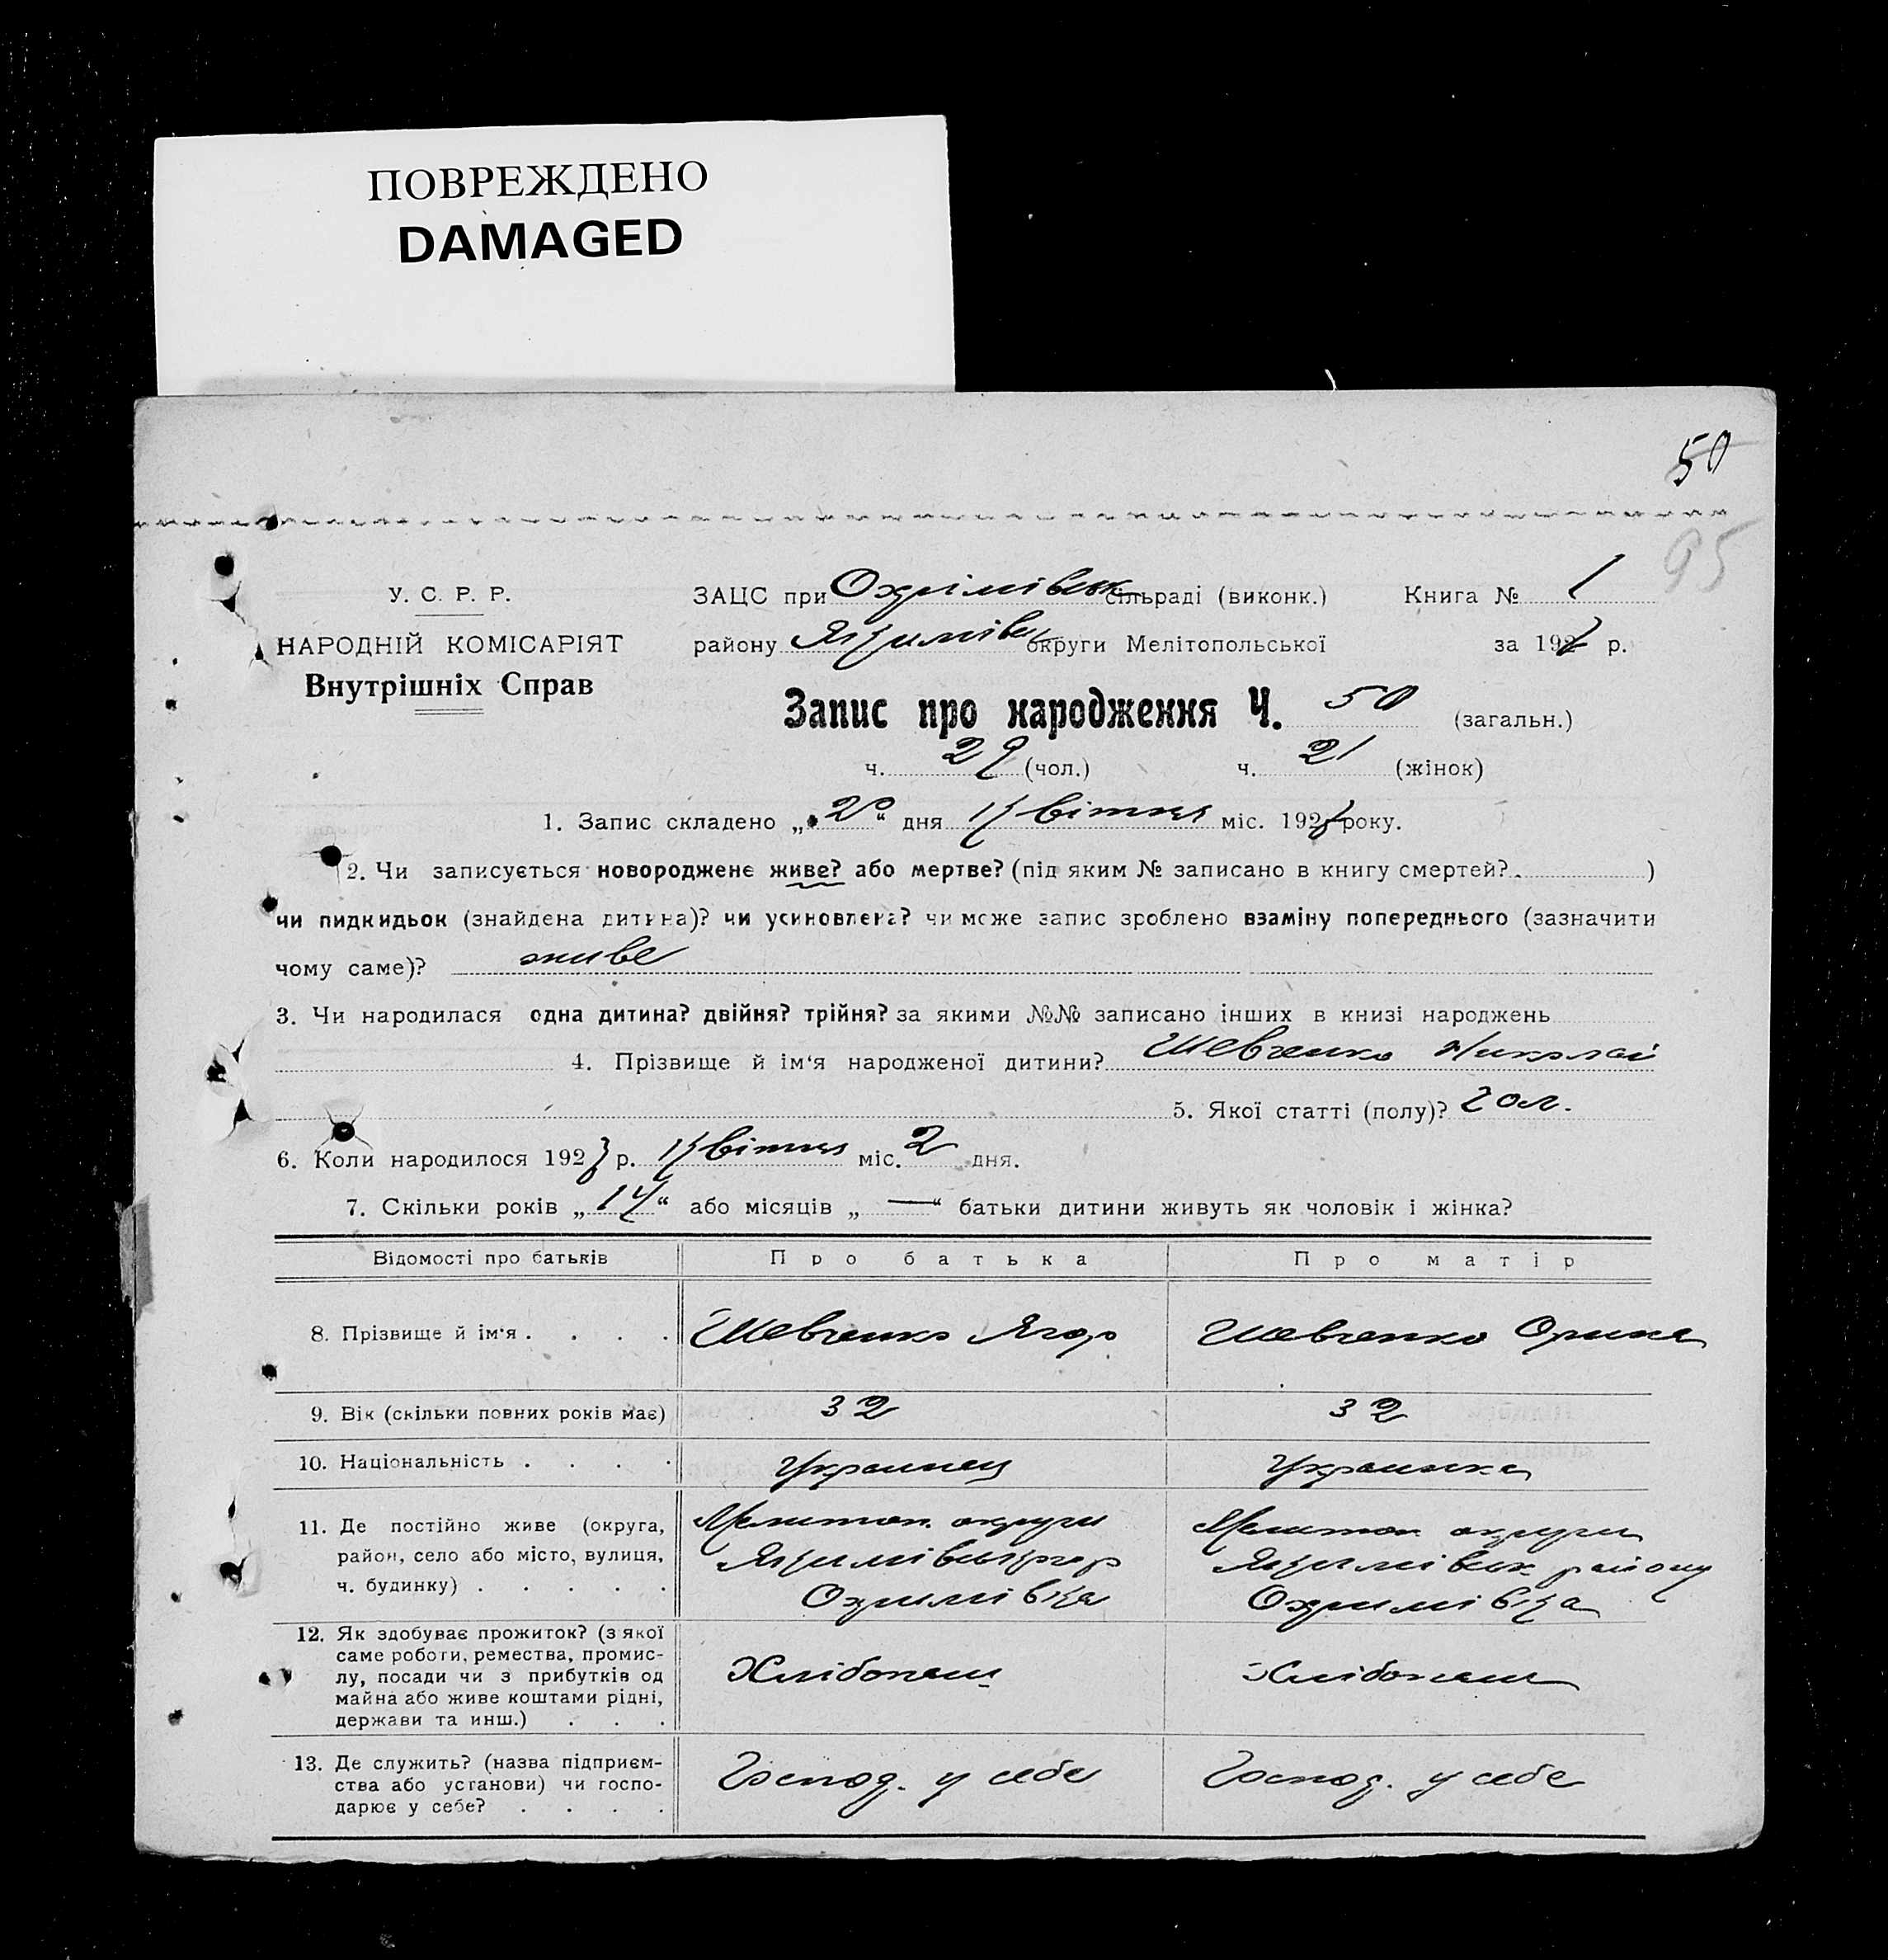 ПОВРЕЖДЕНО
DAMAGED
50
95
У. С. Р. Р.
НАРОДНІЙ КОМІСАРІЯТ
Внутрішніх Справ
ЗАЦС при Охрімівськ сільраді (виконк.) Книга № 1
району Якимівськ округи Мелітопольської за 192 р.
Запис про народження Ч. 50 (загальн.)
ч. 29 (чол.) ч. 21 (жінок)
1. Запис складено „20“ дня квітня міс. 192 року.
2. Чи записується новороджене живе? або мертве? (під яким № записано в книгу смертей? )
чи пидкидьок (знайдена дитина)? чи усиновлена? чи може запис зроблено взаміну попереднього (зазначити
чому саме)? живе
3. Чи народилася одна дитина? двійня? трійня? за якими №№ записано інших в книзі народжень
4. Прізвище й ім‘я народженої дитини? Шевченко Николай
5. Якої статті (полу)? чол.
6. Коли народилося 192 р. квітня міс. 2 дня.
7. Скільки років „14“ або місяців „—“ батьки дитини живуть як чоловік і жінка?
Відомості про батьків Про батька Про матір
8. Прізвище й ім‘я . . . . Шевченко Ягор Шевченко Орина
9. Вік (скільки повних років має) 32 32
10. Національність . . . . Украинец Украинка
11. Де постійно живе (округа,
район, село або місто, вулиця,
ч. будинку) . . . . .
Мелитоп. округи
Якимівськ
Охримівка
Мелитоп округи
Якимівськ району
Охримівка
12. Як здобуває прожиток? (з якої
саме роботи, ремества, промис-
лу, посади чи з прибутків од
майна або живе коштами рідні,
держави та инш.) . . .
Хлібопаш
Хлібопаш
13. Де служить? (назва підприєм-
ства або установи) чи госпо-
дарює у себе? . . . .
Господ. у себе
Господ. у себе